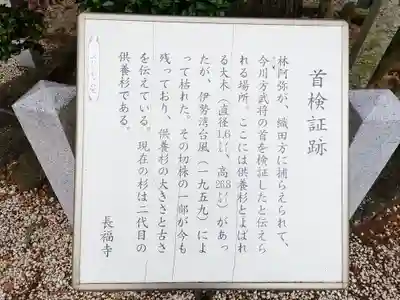 首検証跡
林阿弥が、織田方に捕らえられて、
今川方武将の首を検証したと伝えら
れる場所。ここには供養杉とよばれ
る大木（直径1.6㍍、高26.8㍍）があっ
たが、伊勢湾台風（一九五九）によ
って枯れた。その切株の一部が今も
残っており、供養杉の大きさと古さ
を伝えている。現在の杉は二代目の
供養杉である。
長福寺